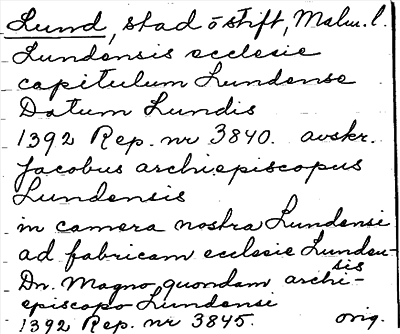 Lund, stad o stift, Malm. l.
Lundensis ecclesie
capitulum Lundense
Datum Lundis
1392 Rep. nr 3840. avskr.
Jacobus archiepiscopus
Lundensis
in camera nostra Lundensi
ad fabricam ecclesie Lunden-
sis
Dn. Magno quondam archi-
episcopo Lundensi
1392 Rep. nr 3845. orig.